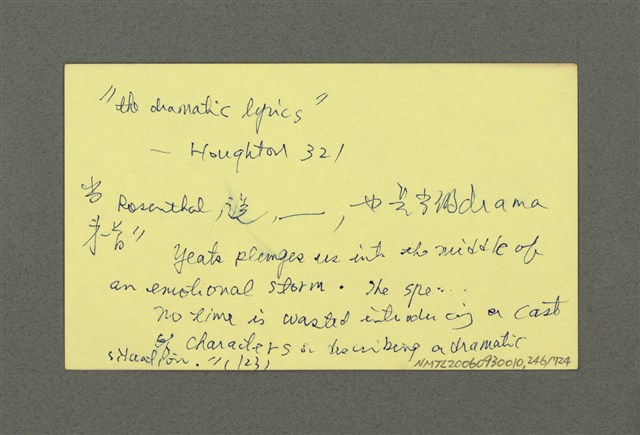 "the dramatic lyrics"
— Houghton 321
當 Rosenthal 說, 一, 也是當個 drama
Yeats plunges us into the middle of
an emotional storm. The spe...
no time is wasted introducing a cast
of characters or describing a dramatic
situation." (123)
NMTL20060930010,246/724